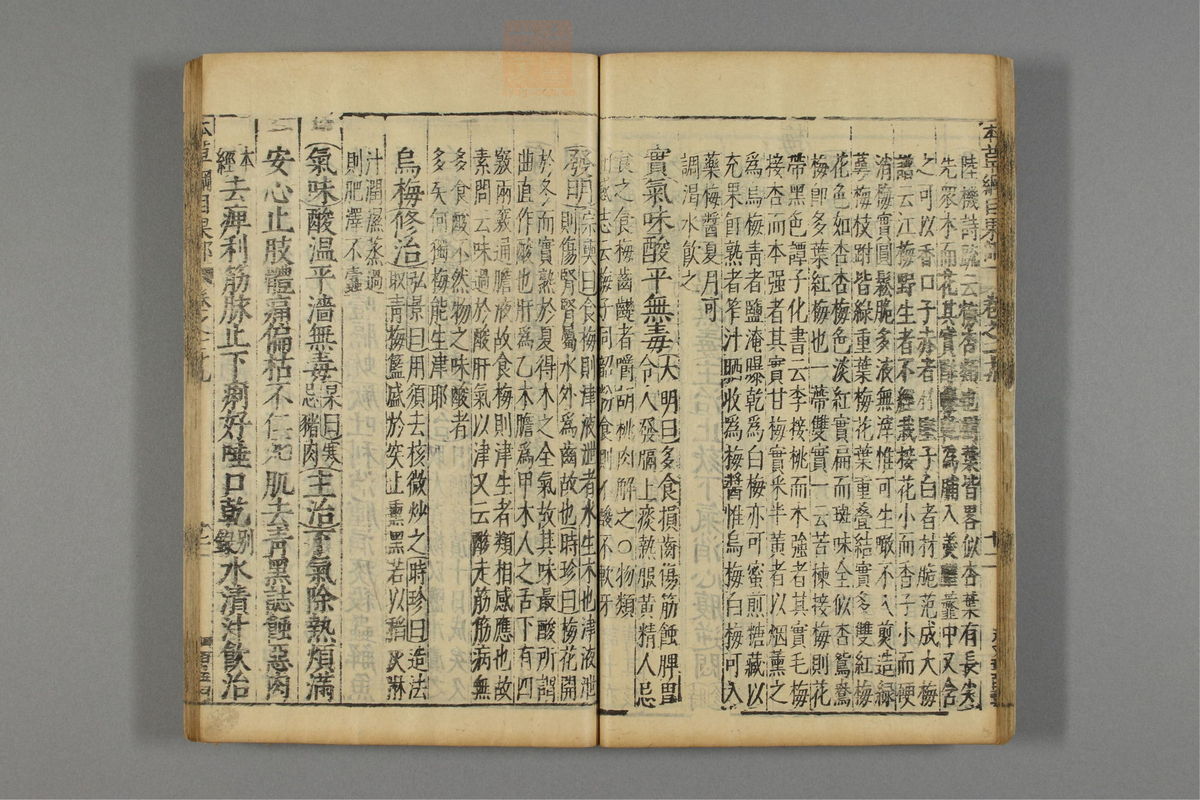 陸機詩疏云梅杏類也樹葉皆畧似杏葉有長尖
先衆木而花其實酢曝乾爲脯入羹臛虀中又含
之可以香口子赤者材堅子白者材脆范成大梅
譜云江梅野生者不經栽接花小而香子小而硬
消梅實圓鬆脆多液無滓惟可生啖不入煎造綠
萼梅枝跗皆綠重葉梅花葉重疊結實多雙紅梅
花色如杏杏梅色淡紅實扁而斑味全似杏鴛鴦
梅卽多葉紅梅也一蒂雙實一云苦楝接梅則花
帶黑色譚子化書云李接桃而本強者其實毛梅
接杏而本強者其實甘梅實采半黃者以烟薰之
爲烏梅青者鹽淹曝乾爲白梅亦可蜜煎糖藏以
充果飣熟者笮汁晒收爲梅醬惟烏梅白梅可入
藥梅醬夏月可
調渴水飲之
實氣味酸平無毒大明曰多食損齒傷筋蝕脾胃
令人發膈上痰熱服黃精人忌
食之食梅齒齼者嚼胡桃肉解之○物類
感志云梅子同韶粉食則不酸不軟牙
發明宗奭曰食梅則津液泄者水生木也津液泄
則傷腎腎屬水外爲齒故也時珍曰梅花開
於冬而實熟於夏得木之全氣故其味最酸所謂
曲直作酸也肝爲乙木膽爲甲木人之舌下有四
竅兩竅通膽液故食梅則津生者類相感應也故
素問云味過於酸肝氣以津又云酸走筋筋病無
多食酸不然物之味酸者
多矣何獨梅能生津耶
烏梅修治弘景曰用須去核微炒之時珍曰造法
取青梅籃盛於突上熏黑若以稻灰淋
汁潤濕蒸過
則肥澤不蠹
氣味酸溫平濇無毒杲曰寒
忌豬肉主治下氣除熱煩滿
安心止肢體痛偏枯不仁死肌去青黑誌蝕惡肉
本經去痺利筋脉止下痢好唾口乾別錄水漬汁飲治